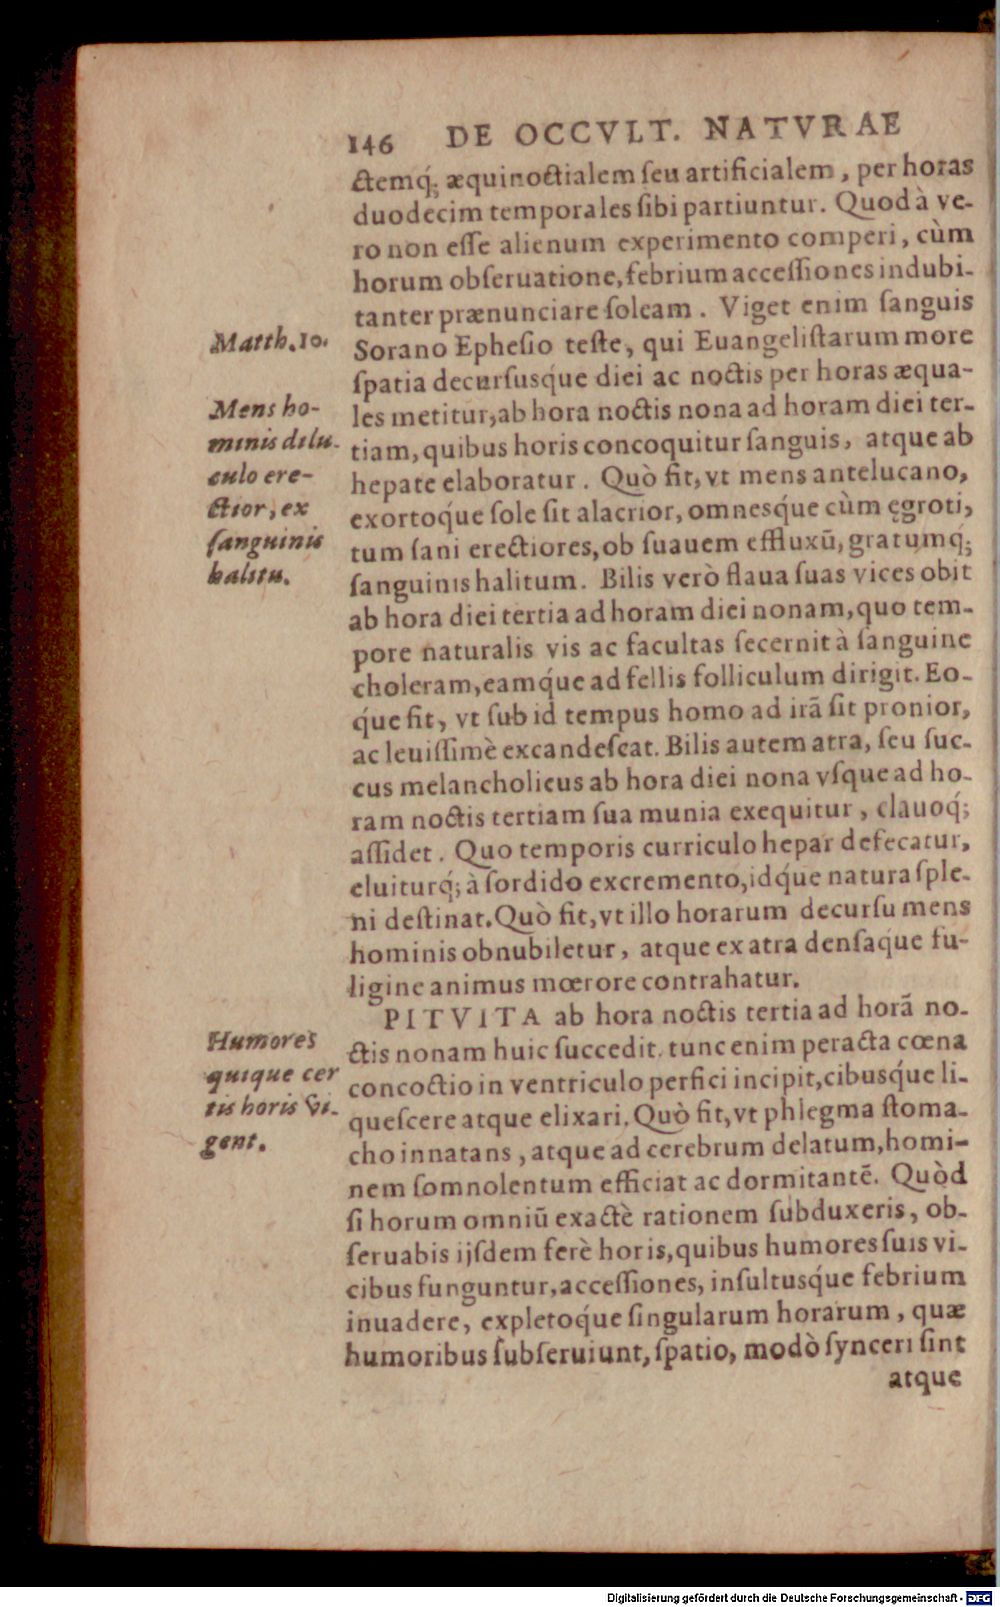 146 DE OCCVLT. NATVRAE
ctemq́; æquinoctialem ſeu artificialem, per horas
duodecim temporales ſibi partiuntur. Quod à ve-
ro non eſſe alienum experimento comperi, cùm
horum obſeruatione, febrium acceſſiones indubi-
tanter prænunciare ſoleam. Viget enim ſanguis
Matth. 10.
Sorano Epheſio teſte, qui Euangeliſtarum more
ſpatia decurſusq́ue diei ac noctis per horas æqua-
Mens ho-
les metitur, ab hora noctis nona ad horam diei ter-
minis dilu-
tiam, quibus horis concoquitur ſanguis, atque ab
culo ere-
hepate elaboratur. Quò fit, vt mens antelucano,
ctior, ex
exortoq́ue ſole ſit alacrior, omnesq́ue cùm ęgroti,
ſanguinis
tum ſani erectiores, ob ſuauem effluxū, gratumq́;
halitu.
ſanguinis halitum. Bilis verò flaua ſuas vices obit
ab hora diei tertia ad horam diei nonam, quo tem-
pore naturalis vis ac facultas ſecernit à ſanguine
choleram, eamq́ue ad fellis folliculum dirigit. Eo-
q́ue fit, vt ſub id tempus homo ad irā ſit pronior,
ac leuiſſimè excandeſcat. Bilis autem atra, ſeu ſuc-
cus melancholicus ab hora diei nona vſque ad ho-
ram noctis tertiam ſua munia exequitur, clauoq́;
aſſidet. Quo temporis curriculo hepar defecatur,
eluiturq́; à ſordido excremento, idq́ue natura ſple-
ni deſtinat. Quò fit, vt illo horarum decurſu mens
hominis obnubiletur, atque ex atra denſaque fu-
ligine animus mœrore contrahatur.
PITVITA ab hora noctis tertia ad horā no-
Humores
ctis nonam huic ſuccedit. tunc enim peracta cœna
quique cer
concoctio in ventriculo perfici incipit, cibusq́ue li-
tis horis vi-
queſcere atque elixari. Quò fit, vt phlegma ſtoma-
gent.
cho innatans, atque ad cerebrum delatum, homi-
nem ſomnolentum efficiat ac dormitantē. Quòd
ſi horum omniū exactè rationem ſubduxeris, ob-
ſeruabis ijſdem ferè horis, quibus humores ſuis vi-
cibus funguntur, acceſſiones, inſultusq́ue febrium
inuadere, expletoq́ue ſingularum horarum, quæ
humoribus ſubſeruiunt, ſpatio, modò ſynceri ſint
atque
Digitalisierung gefördert durch die Deutsche Forschungsgemeinschaft - DFG